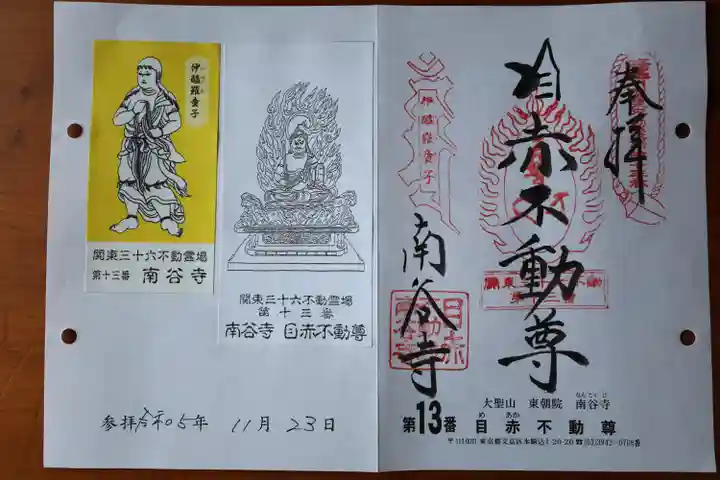 伊醯羅童子
関東三十六不動霊場
第十三番 南谷寺
関東三十六不動霊場
第十三番
南谷寺 目赤不動尊
参拝令和05年 11月 23日
奉拝
目赤不動尊
伊醯羅童子
南谷寺
大聖山 東朝院 南谷寺
なんこくじ
第13番 目赤不動尊
め あか
東京都文京区本駒込1-20-20